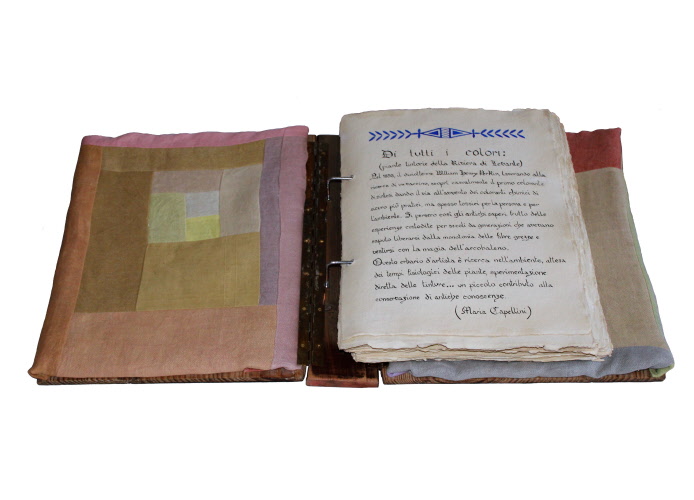 Di tutti i colori:
(piante tintorie della Riviera di Levante)
il diciottenne William Henry Perkin, lavorando alla
ricerca di scoprì casualmente il primo colorante
dando il via all'avvento dei coloranti chimici di
più pratici, ma spesso tossici per la persona e per
l'ambiente. Si persero così gli antichi saperi frutto delle
esperienze custodite per secoli da generazioni che avevano
saputo liberarsi dalla monotonia delle fibre grezze e
vestirsi con la magia dell'arcobaleno.
Questo erbario d'artista è ricerca nell'ambiente, attesa
dei tempi fisiologici delle piante, sperimentazione
diretta delle tinture... un piccolo contributo alla
conservazione di antiche conoscenze.
(Maria Capellini)